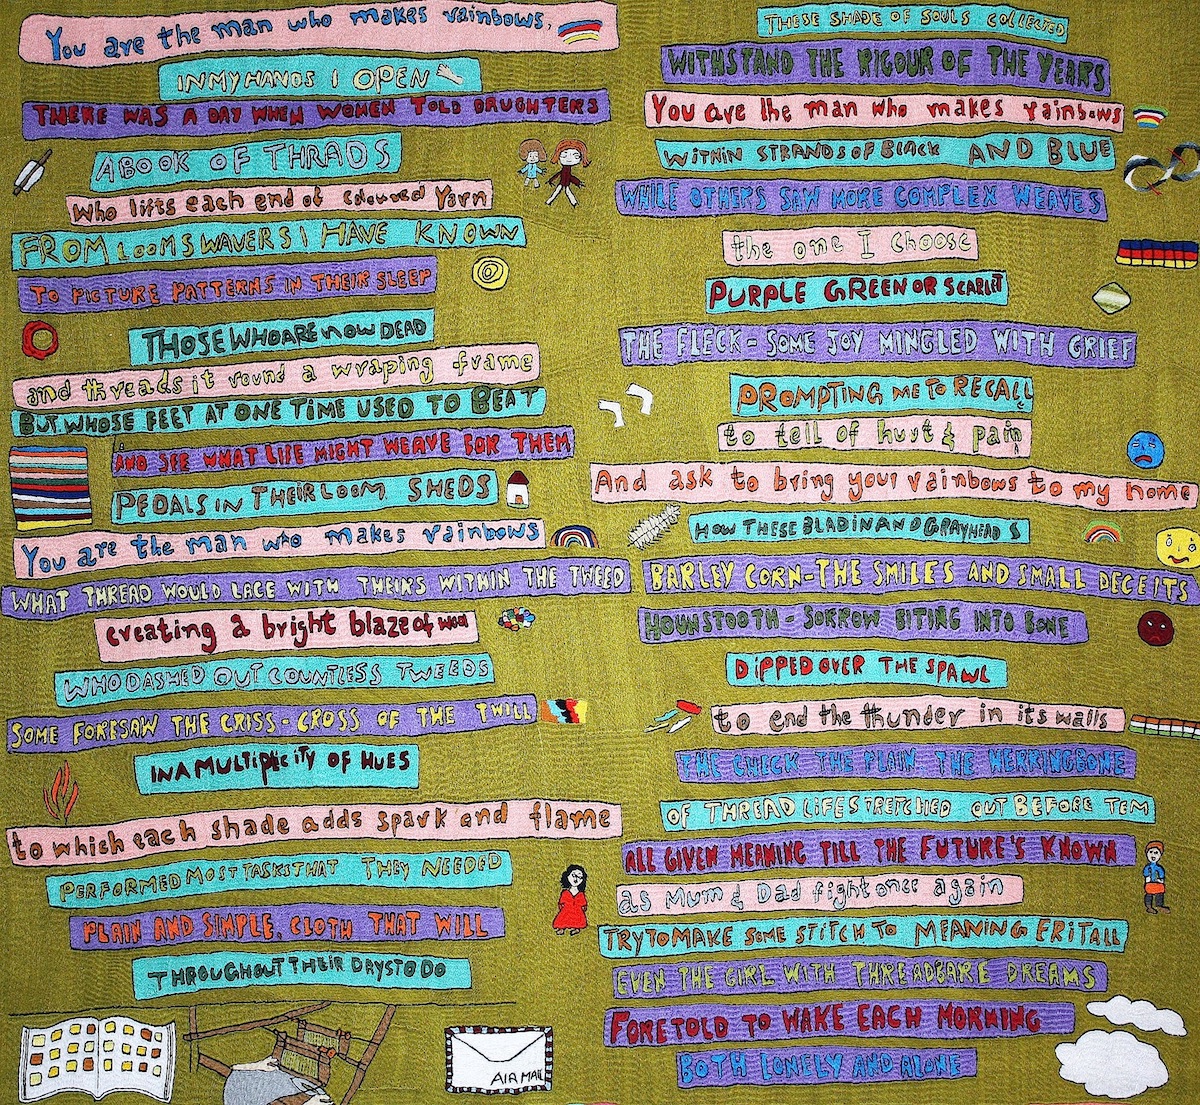 You are the man who makes rainbows,
IN MY HANDS I OPEN
THERE WAS A DAY WHEN WOMEN TOLD DAUGHTERS
A BOOK OF THRADS
Who lifts each end of coloured Yarn
FROM LOOMS WAVERS I HAVE KNOWN
TO PICTURE PATTERNS IN THEIR SLEEP
THOSE WHO ARE NOW DEAD
and threads it round a wraping frame
BUT WHOSE FEET AT ONE TIME USED TO BEAT
AND SEE WHAT LIFE MIGHT WEAVE FOR THEM
PEDALS IN THEIR LOOM SHEDS
You are the man who makes rainbows
WHAT THREAD WOULD LACE WITH THEIRS WITHIN THE TWEED
creating a bright blaze of wool
WHO DASHED OUT COUNTLESS TWEEDS
SOME FORESAW THE CRISS-CROSS OF THE TWILL
IN A MULTIPLICITY OF HUES
to which each shade adds spark and flame
PERFORMED MOST TASKS THAT THEY NEEDED
PLAIN AND SIMPLE, CLOTH THAT WILL
THROUGHOUT THEIR DAYS TO DO
AIR MAIL
THESE SHADE OF SOULS COLLECTED
WITHSTAND THE RIGOUR OF THE YEARS
You are the man who makes rainbows
WITHIN STRANDS OF BLACK AND BLUE
WHILE OTHERS SAW MORE COMPLEX WEAVES
the one I choose
PURPLE GREEN OR SCARLET
THE FLECK - SOME JOY MINGLED WITH GRIEF
PROMPTING ME TO RECALL
to tell of hurt & pain
And ask to bring your rainbows to my home
HOW THESE BLADIN AND GRAYHEADS
BARLEY CORN - THE SMILES AND SMALL DECEITS
HOUNSTOOTH - SORROW BITING INTO BONE
DIPPED OVER THE SPAWL
to end the thunder in its walls
THE CHECK THE PLAIN THE HERRINGBONE
OF THREAD LIFE STRETCHED OUT BEFORE TEM
ALL GIVEN MEANING TILL THE FUTURE'S KNOWN
as Mum & Dad fight once again
TRY TO MAKE SOME STITCH TO MEANING ERITALL
EVEN THE GIRL WITH THREADBARE DREAMS
FORETOLD TO WAKE EACH MORNING
BOTH LONELY AND ALONE